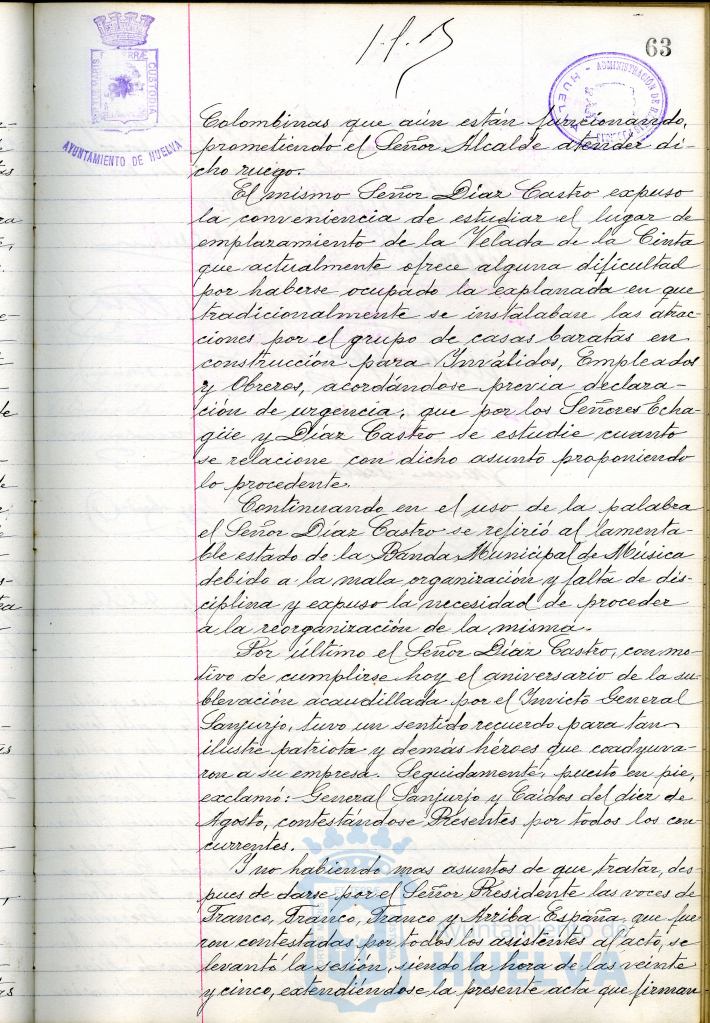 63
AYUNTAMIENTO DE HUELVA
Colombinas que aún están funcionando,
prometiendo el Señor Alcalde atender di-
cho ruego.
El mismo Señor Díaz Castro expuso
la conveniencia de estudiar el lugar de
emplazamiento de la Velada de la Cinta
que actualmente ofrece alguna dificultad
por haberse ocupado la explanada en que
tradicionalmente se instalaban las atrac-
ciones por el grupo de casas baratas en
construcción para Inválidos, Empleados
y Obreros, acordándose previa declara-
ción de urgencia, que por los Señores Echa-
güe y Díaz Castro se estudie cuanto
se relacione con dicho asunto proponiendo
lo procedente.
Continuando en el uso de la palabra
el Señor Díaz Castro se refirió al lamenta-
ble estado de la Banda Municipal de Música
debido a la mala organización y falta de dis-
ciplina y expuso la necesidad de proceder
a la reorganización de la misma.
Por último el Señor Díaz Castro, con mo-
tivo de cumplirse hoy el aniversario de la su-
blevación acaudillada por el Invicto General
Sanjurjo, tuvo un sentido recuerdo para tan
ilustre patriota y demás héroes que coadyuva-
ron a su empresa. Seguidamente, puesto en pie,
exclamó: General Sanjurjo y Caídos del diez de
Agosto, contestándose Presentes por todos los con-
currentes.
Y no habiendo mas asuntos de que tratar, des-
pues de darse por el Señor Presidente las voces de
Franco, Franco, Franco y Arriba España, que fue-
ron contestadas por todos los asistentes al acto, se
levantó la sesión, siendo la hora de las veinte
y cinco, extendiéndose la presente acta que firman
Ayuntamiento de
HUELVA